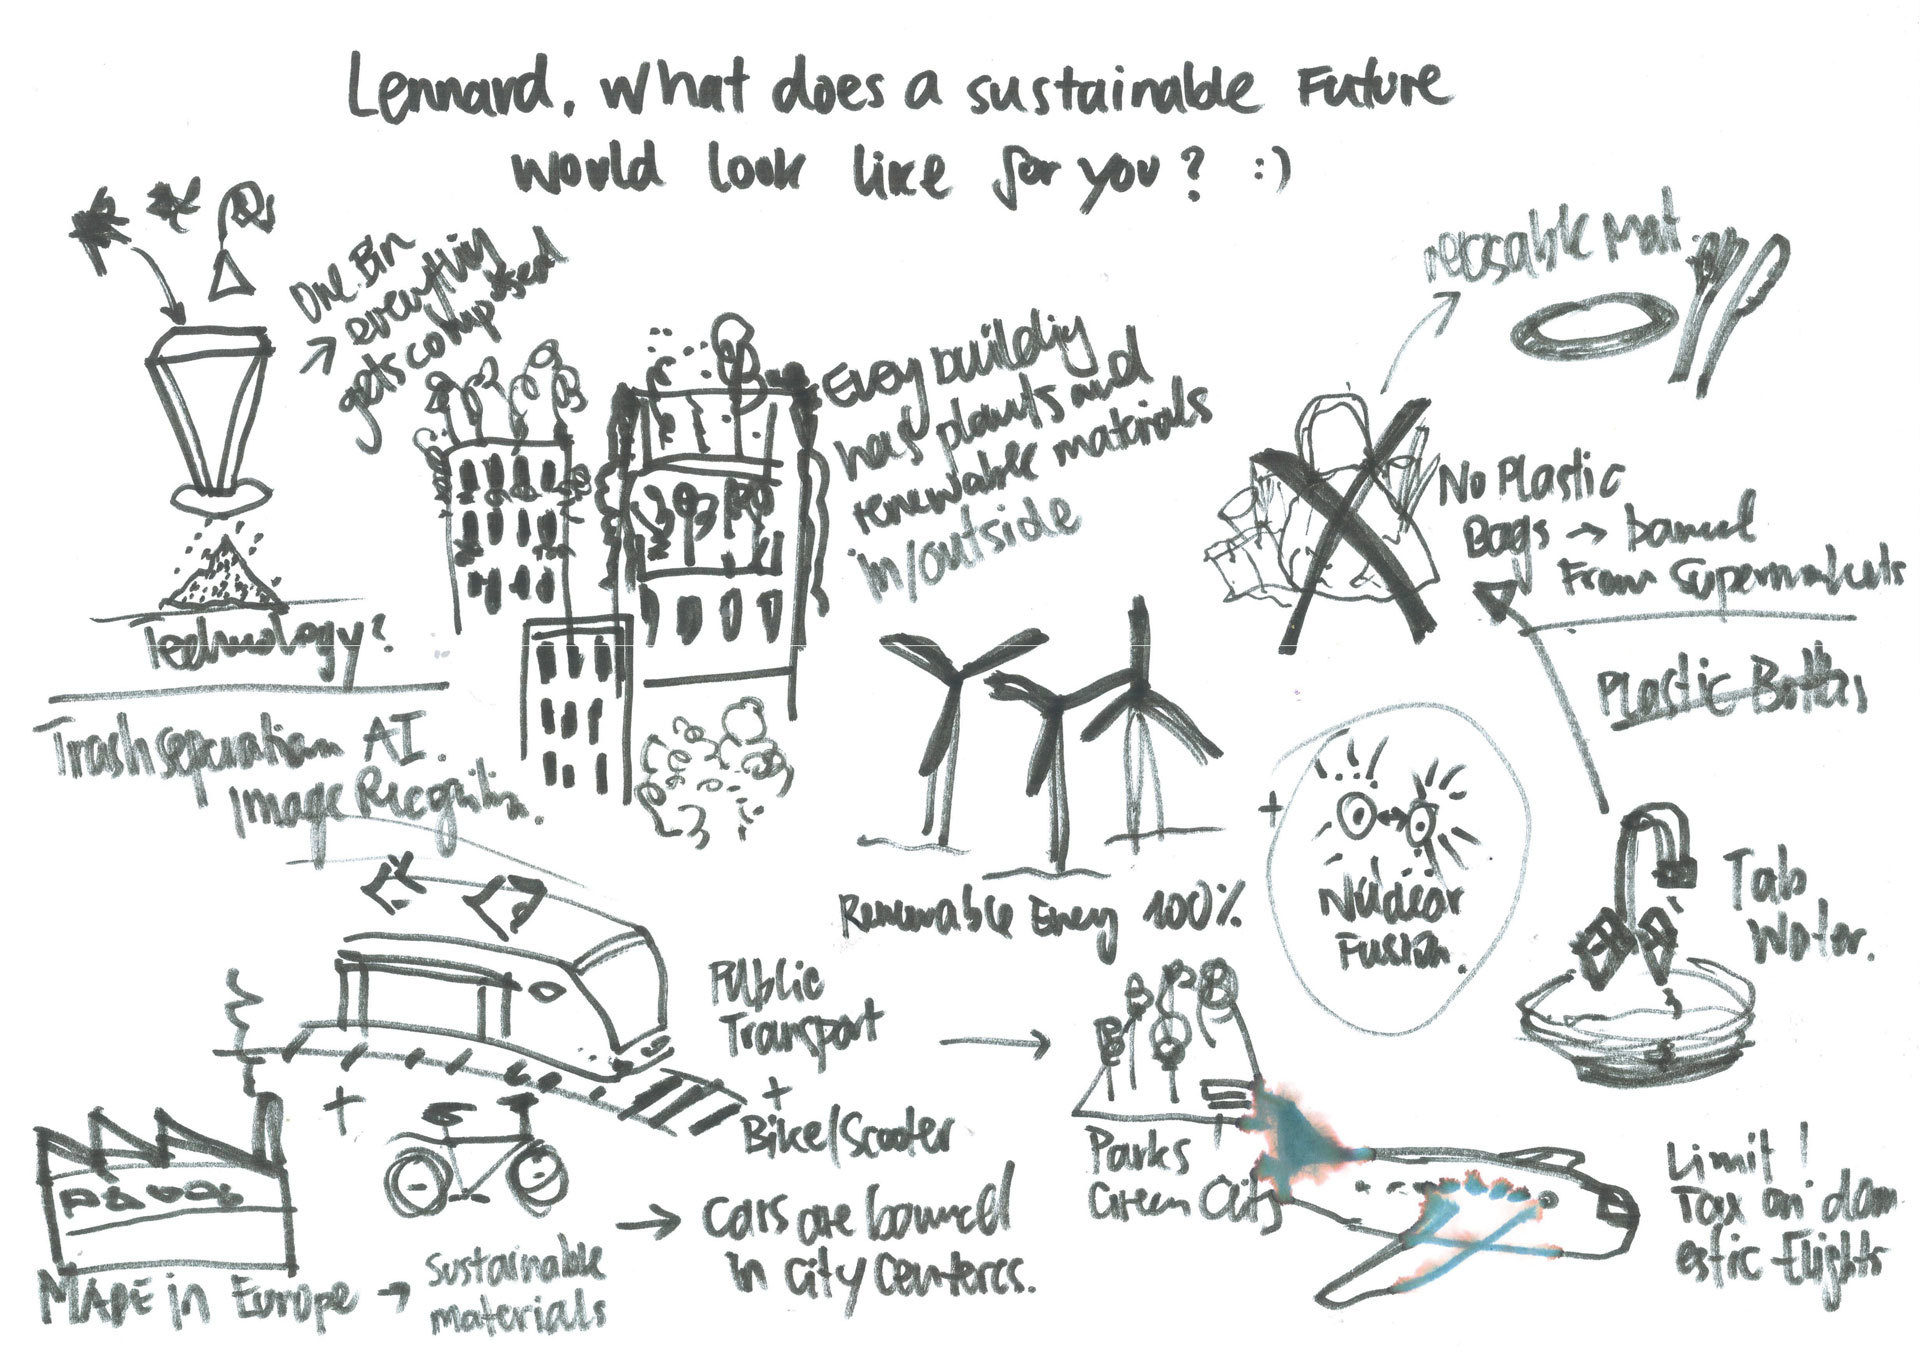 Lennard, what does a sustainable Future
would look like for you? :)
One Bin
→ everything
gets composed
Technology?
Trashseparation AI.
Image Recognition.
Every building
has plants and
renewable materials
in/outside
reusable mat.
No Plastic
Bags → banned
From Supermarkets
Plastic Bottles
Renewable Energy 100%
+
Nuclear
Fusion.
Tab
Water.
Public
Transport
+
Bike/Scooter
→ Cars are banned
in city Centeres.
Parks
Green City
+
MADE in Europe → sustainable
materials
Limit!
Tax on dom
estic Flights